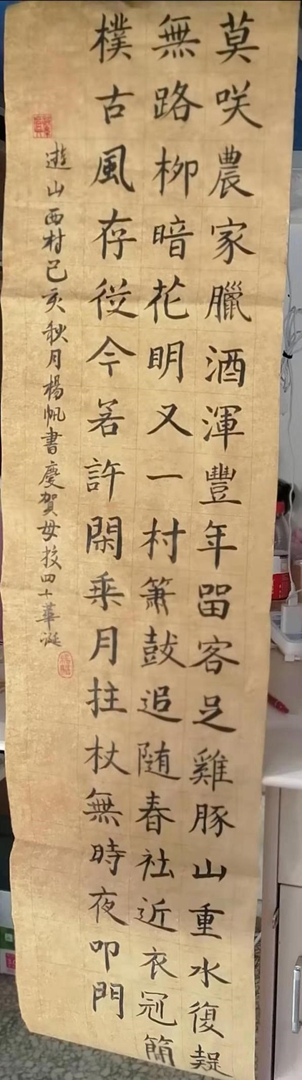 莫咲農家臘酒渾豐年留客足雞豚山重水復疑
無路柳暗花明又一村簫鼓追隨春社近衣冠簡
樸古風存從今若許閑乘月拄杖無時夜叩門
遊山西村己亥秋月楊帆書慶賀母校四十華誕